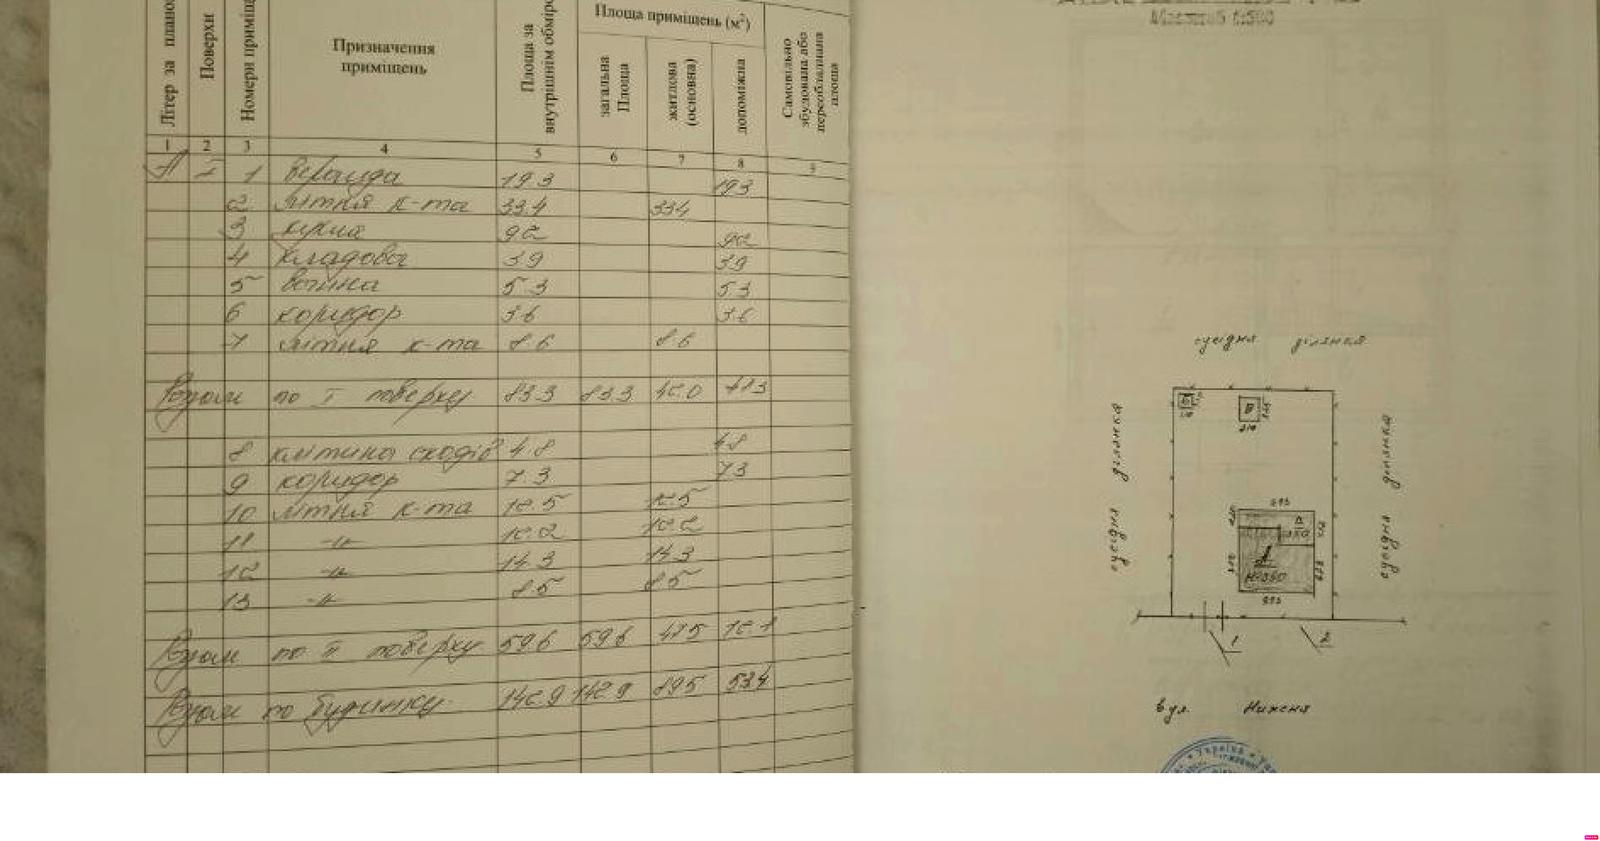 Літер за
Поверхи
Номери
Призначення приміщень
Площа за внутрішнім
Площа приміщень (м²)
загальна Площа
житлова (основна)
допоміжна
Самовільно збудована або переобладнана площа
1 2 3 4 5 6 7 8 9
А I 1 веранда 19.3 19.3
2 літня к-та 33.4 33.4
3 кухня 9.2 9.2
4 кладова 3.9 3.9
5 ванна 5.3 5.3
6 коридор 3.6 3.6
7 літня к-та 8.6 8.6
Разом по I поверху 83.3 83.3 42.0 41.3
8 клітина сходів 4.8 4.8
9 коридор 7.3 7.3
10 літня к-та 12.5 12.5
11 -"- 12.2 12.2
12 -"- 14.3 14.3
13 -"- 8.5 8.5
Разом по II поверху 59.6 59.6 47.5 12.1
Разом по будинку 142.9 142.9 89.5 53.4
Масштаб 1:500
сусідня ділянка
сусідня ділянка
сусідня ділянка
1 2
вул. Нижня
Україна